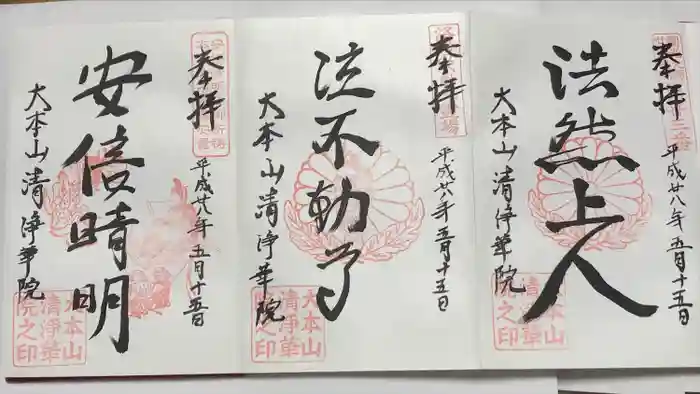 法然上人
奉拝
平成廿八年五月十五日
大本山清浄華院
大本山
清浄華
院之印
泣不動尊
奉拝
平成廿八年五月十五日
大本山清浄華院
大本山
清浄華
院之印
安倍晴明
奉拝
平成廿八年五月十五日
大本山清浄華院
大本山
清浄華
院之印